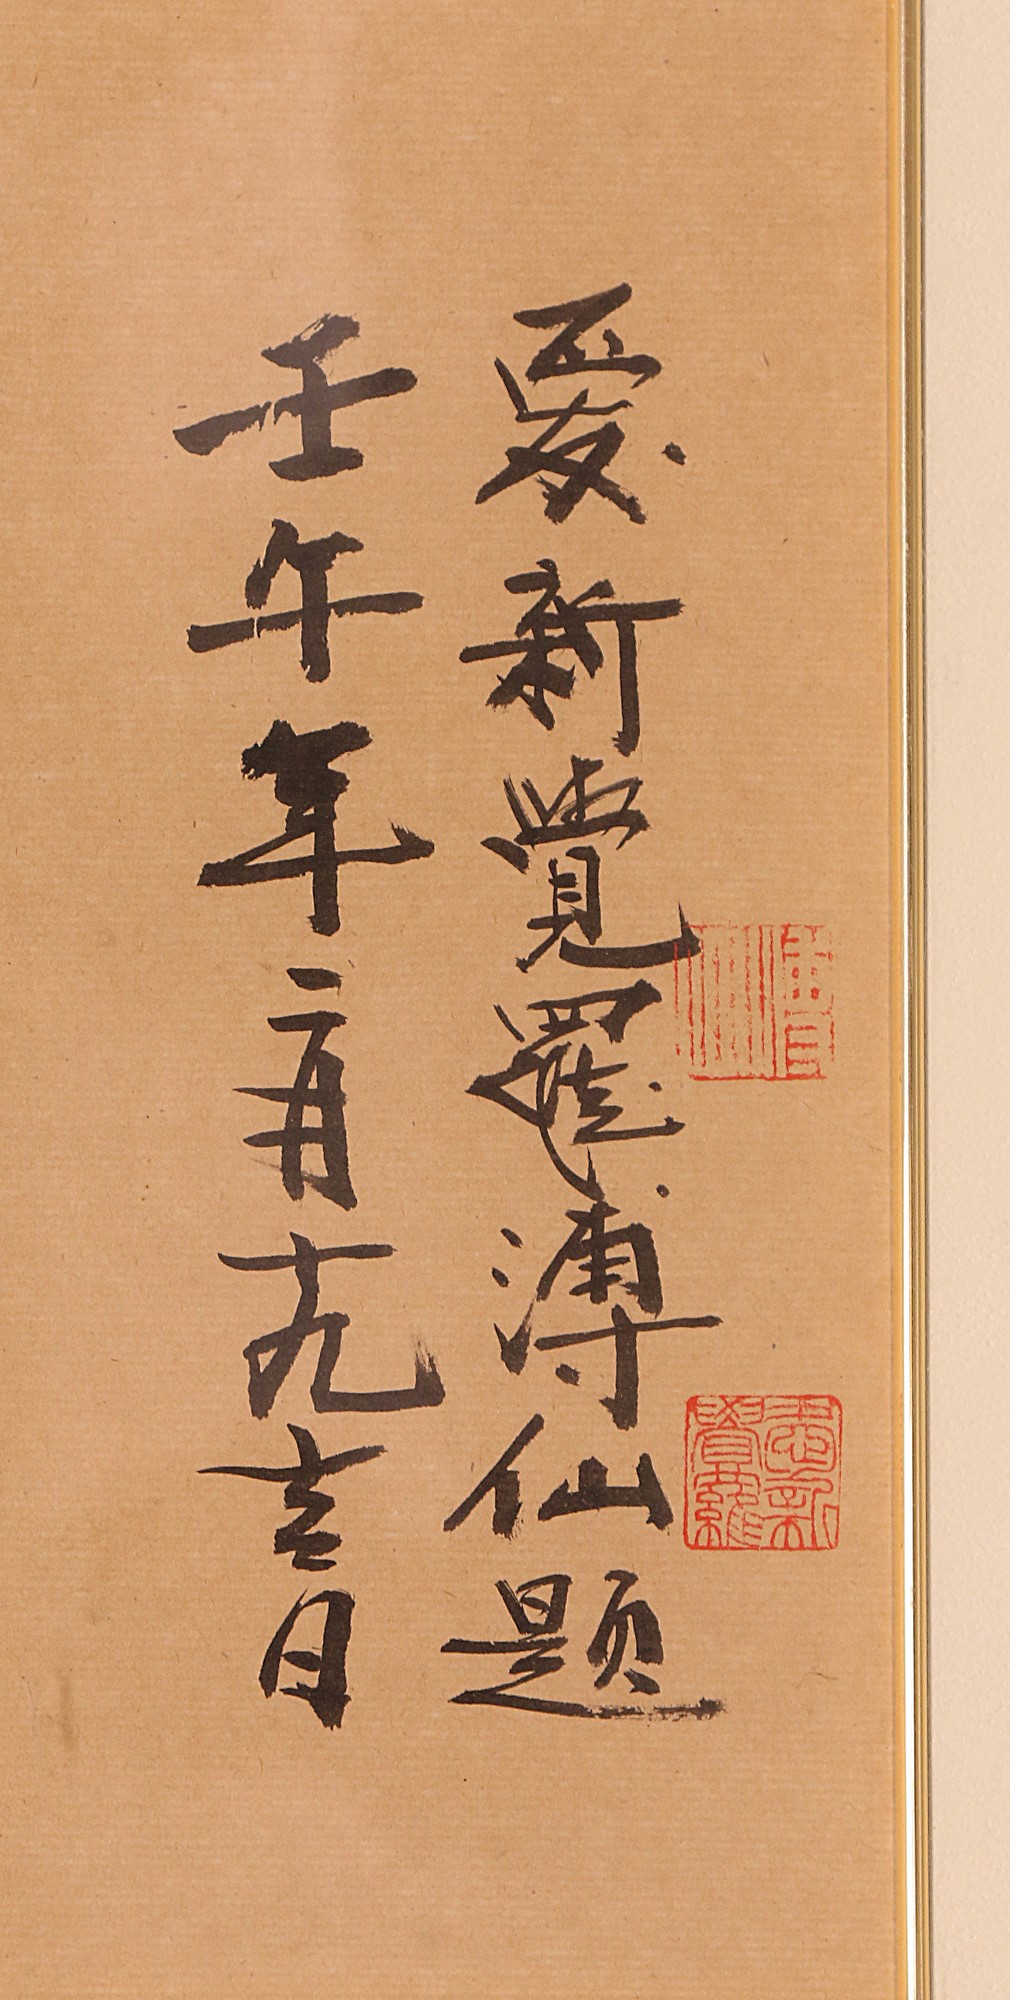 愛新覺羅溥仙题
壬午年二月十九吉日
愛新覺羅